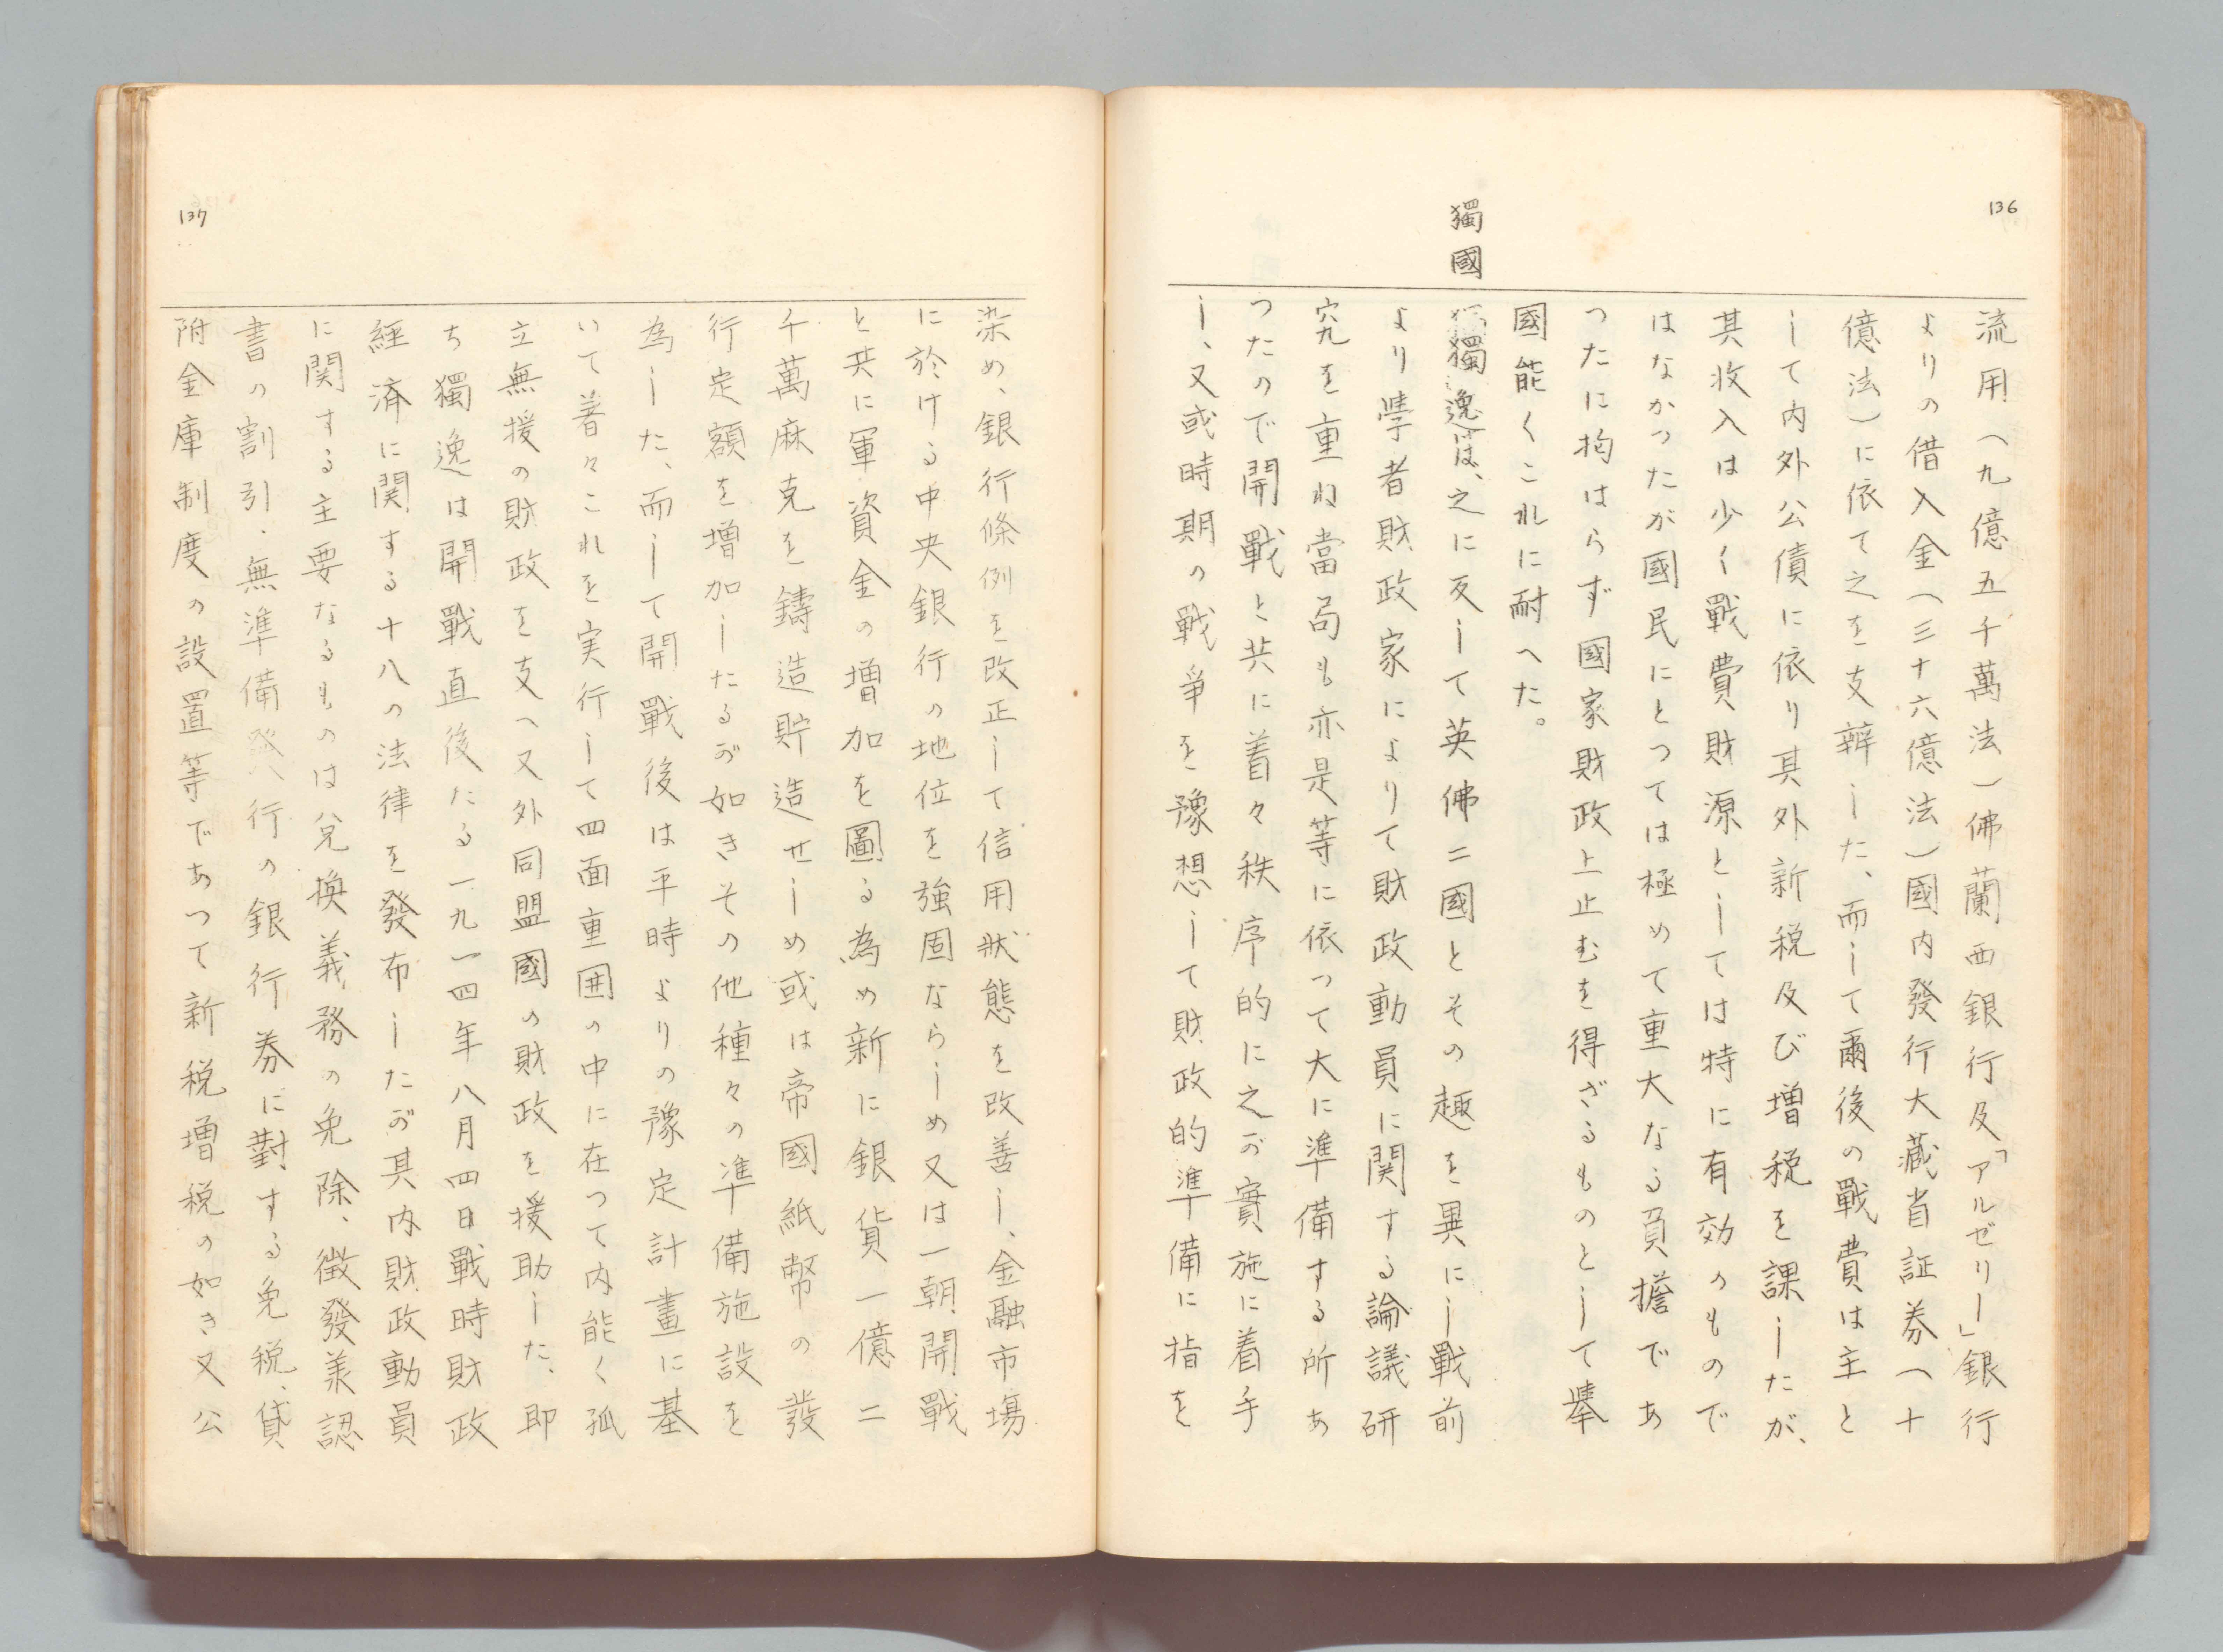 136
獨國
流用(九億五千萬法)佛蘭西銀行及「アルゼリー」銀行
よりの借入金(三十六億法)國内發行大藏省証券(十
億法)に依て之を支辨した、而して爾後の戰費は主と
して内外公債に依り其外新税及び増税を課したが、
其收入は少く戰費財源としては特に有効のもので
はなかつたが國民にとつては極めて重大なる負擔であ
つたに拘はらず國家財政上止むを得ざるものとして擧
國能くこれに耐へた。
獨逸は、之に反して英佛二國とその趣を異にし戰前
より學者財政家によりて財政動員に関する論議研
究を重ね當局も亦是等に依つて大に準備する所あ
つたので開戰と共に着々秩序的に之が實施に着手
し、又或時期の戰爭を豫想して財政的準備に指を
137
染め、銀行條例を改正して信用状態を改善し、金融市場
に於ける中央銀行の地位を強固ならしめ又は一朝開戰
と共に軍資金の増加を圖る為め新に銀貨一億二
千萬麻克を鑄造貯造せしめ或は帝國紙幣の發
行定額を増加したるが如きその他種々の準備施設を
為した、而して開戰後は平時よりの豫定計畫に基
いて着々これを実行して四面重囲の中に在つて内能く孤
立無援の財政を支へ又外同盟國の財政を援助した、即
ち獨逸は開戰直後たる一九一四年八月四日戰時財政
経済に関する十八の法律を發布したが其内財政動員
に関する主要なるものは兌換義務の免除、徴發羕認
書の割引、無準備発行の銀行券に對する免税、貸
附金庫制度の設置等であつて新税増税の如き又公